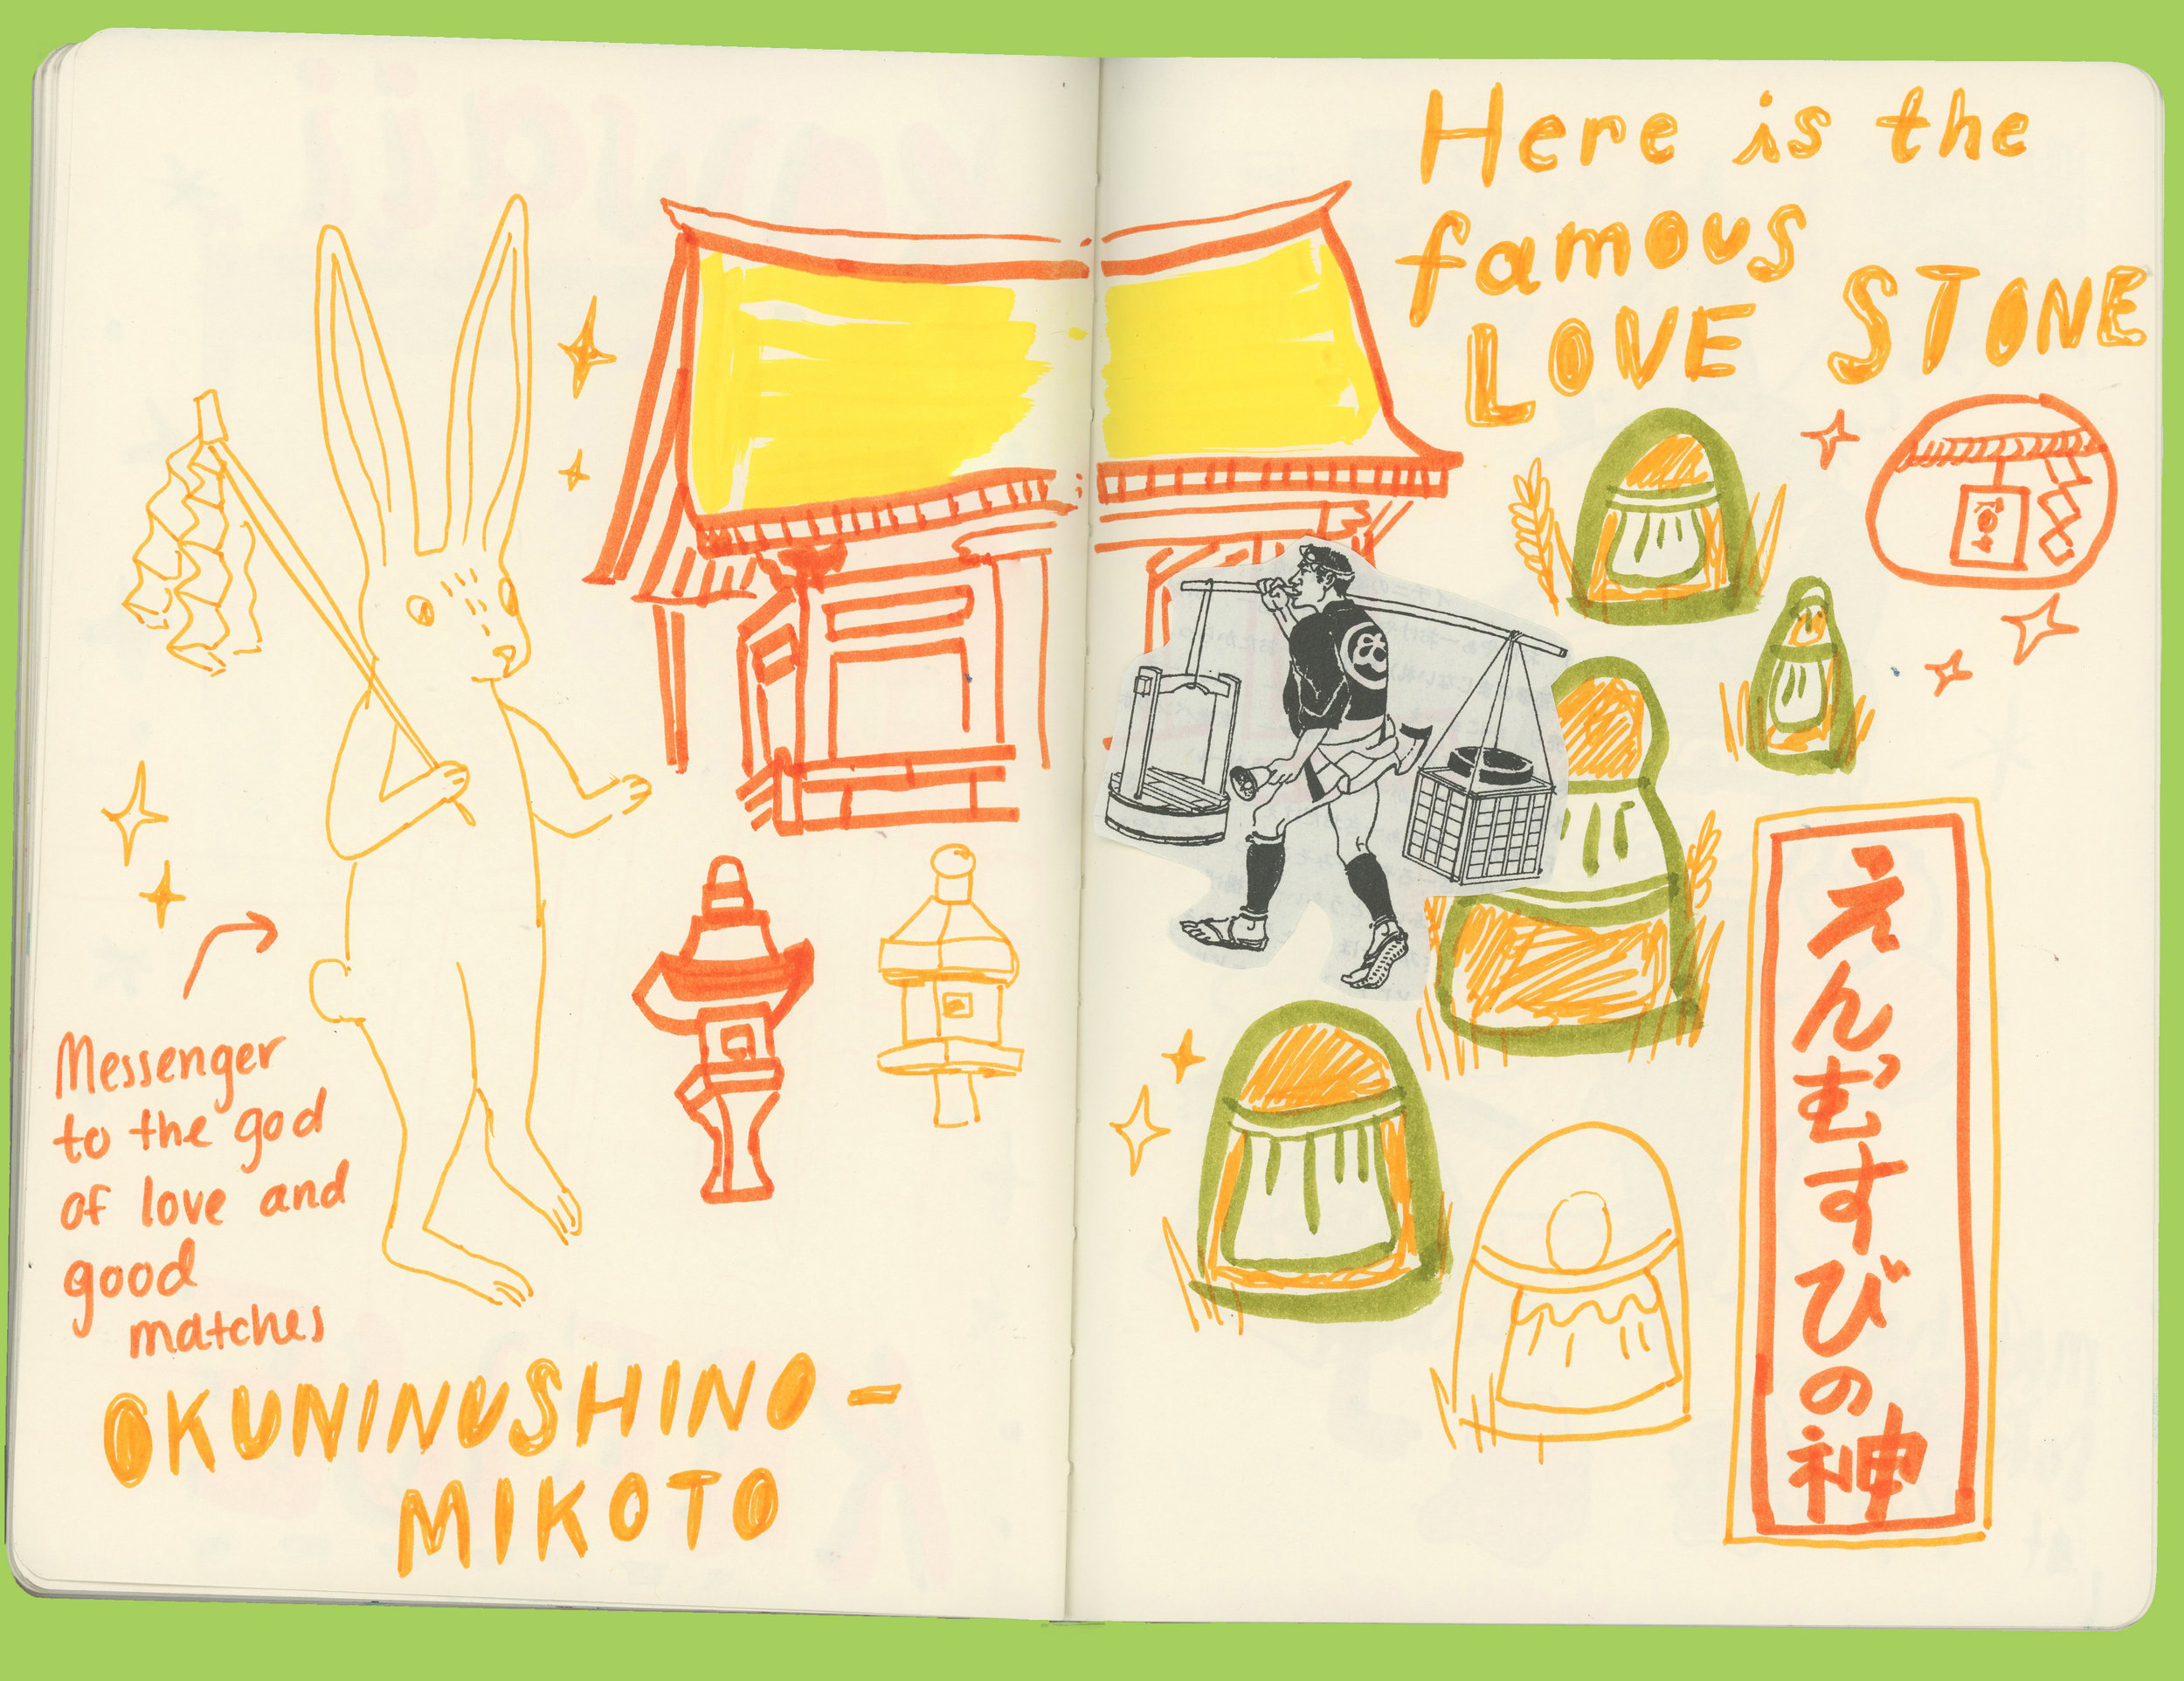 Messenger
to the god
of love and
good
matches
OKUNINUSHINO-
MIKOTO
Here is the
famous
LOVE STONE
えんむすびの神